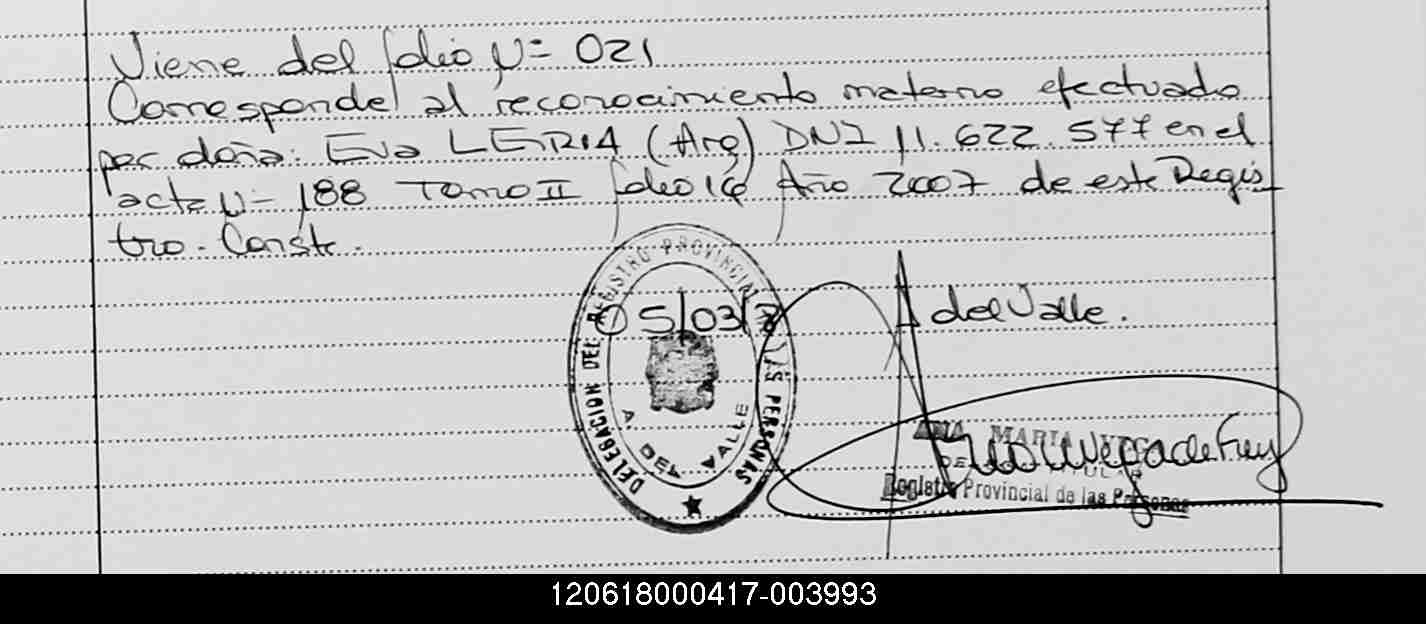 Viene del folio Nº 021
Corresponde al reconocimiento materno efectuado
por doña: Eva LERIA (Arg) DNI 11.622.577 en el
acta Nº 188 Tomo II folio 16 Año 2007 de este Regis
tro. Conste.
DELEGACION DEL REGISTRO PROVINCIAL LAS PERSONAS
A. DEL VALLE
05/03/
A del Valle.
ANA MARIA
Registro Provincial de las Personas
120618000417-003993